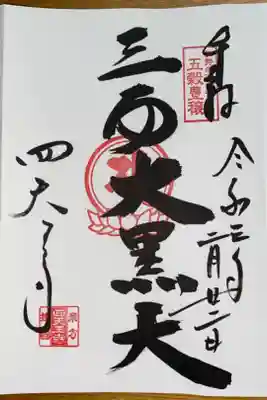 奉拝
五穀豊穣
令和三年二月廿二日
三面大黒天
四天王寺